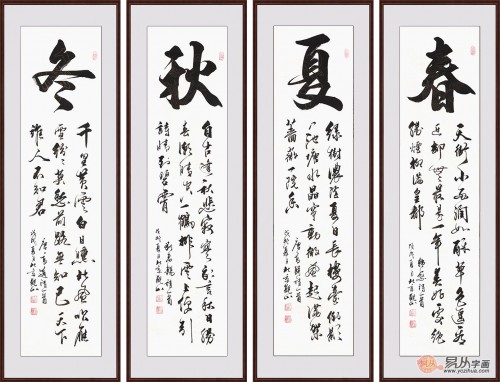 春
天街小雨润如酥草色遥看
近却无最是一年春好处绝
胜烟柳满皇都
韩愈诗一首
夏
绿树浓阴夏日长楼台倒影
入池塘水晶帘动微风起满架
蔷薇一院香
唐高骈诗一首
秋
自古逢秋悲寂寥我言秋日胜
春朝晴空一鹤排云上便引
诗情到碧霄
刘禹锡诗一首
冬
千里黄云白日曛北风吹雁
雪纷纷莫愁前路无知己天下
谁人不知君
唐高适诗一首
易从字画
www.yczihua.com